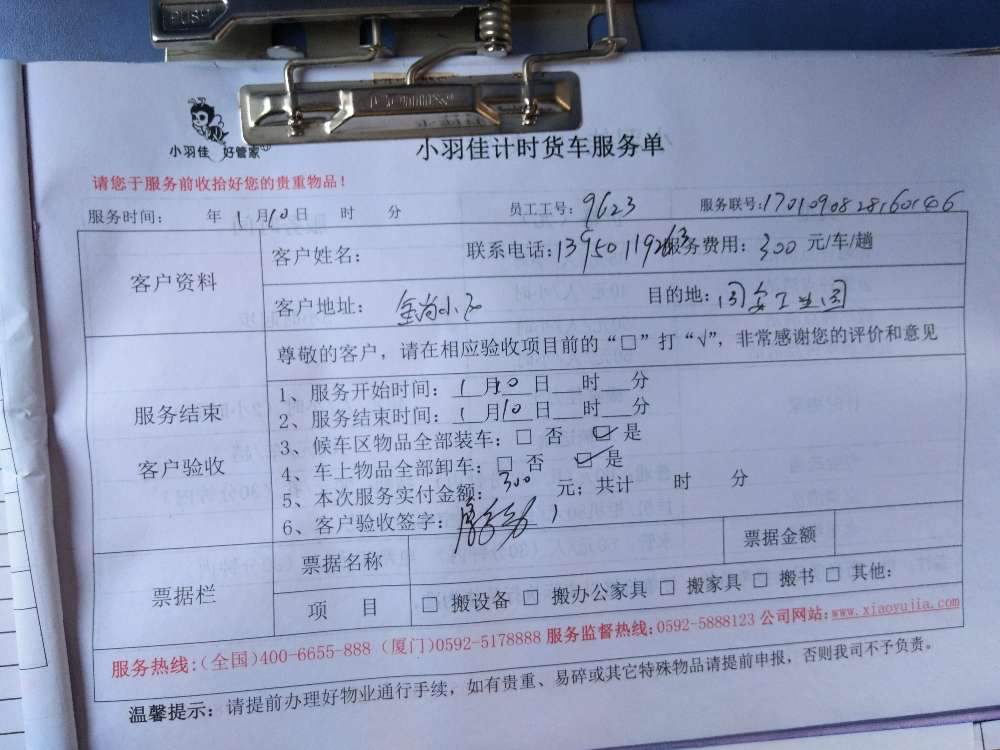 PUSH
小羽佳 好管家
小羽佳计时货车服务单
请您于服务前收拾好您的贵重物品！
服务时间： 年 1月10日 时 分 员工工号：9623 服务联号：1701090828160146
客户资料
客户姓名： 联系电话：13950119263 服务费用：300 元/车/趟
客户地址：金尚小区 目的地：同安工业园
尊敬的客户，请在相应验收项目前的“□”打“√”，非常感谢您的评价和意见
服务结束
客户验收
1、服务开始时间：1月10日 时 分
2、服务结束时间：1月10日 时 分
3、候车区物品全部装车：□ 否 ☑ 是
4、车上物品全部卸车：□ 否 ☑ 是
5、本次服务实付金额：300 元；共计 时 分
6、客户验收签字：
票据栏
票据名称 票据金额
项 目 □ 搬设备 □ 搬办公家具 □ 搬家具 □ 搬书 □ 其他：
服务热线：(全国)400-6655-888 (厦门)0592-5178888 服务监督热线：0592-5888123 公司网站：www.xiaoyujia.com
温馨提示：请提前办理好物业通行手续，如有贵重、易碎或其它特殊物品请提前申报，否则我司不予负责。